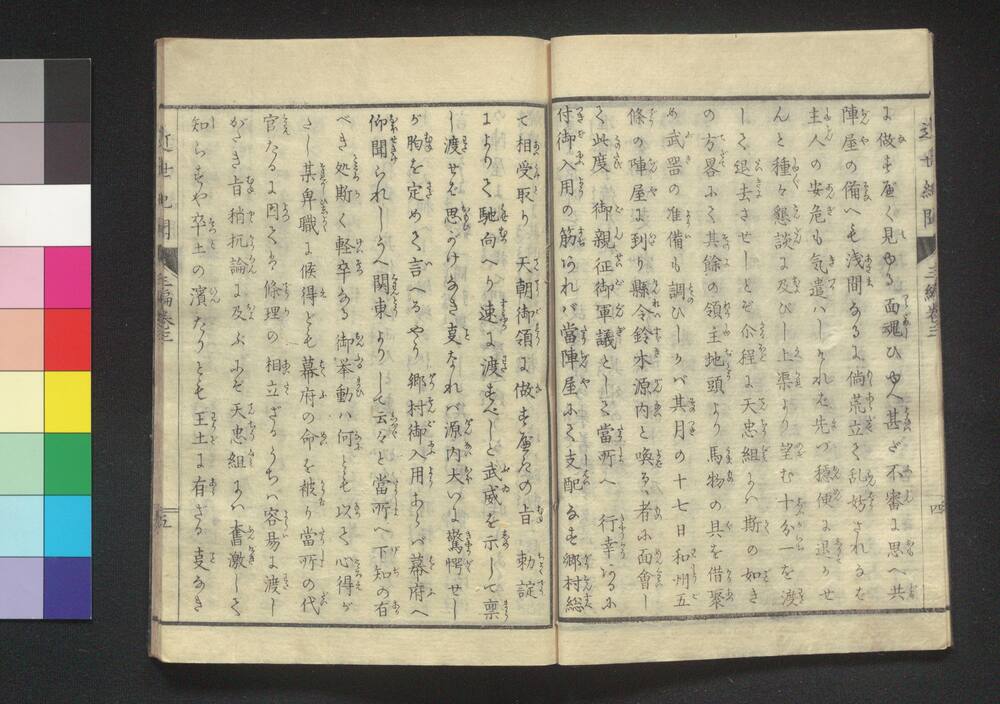 に做すべく見ゆる面魂ひゆへ甚だ不審に思へ共
陣屋の備へも浅間なるに倘荒立て乱妨されなを
主人の安危も気遣ハしければ先づ穏便に退かせ
んと種々懇談に及びし上渠より望む十分一を渡
して退去させしとぞ 程に天忠組ハ斯の如き
の方畧にて其餘の領主地頭より馬物の具を借聚
め武器の准備も調ひしかバ其月の十七日和州五
條の陣屋に到り縣令鈴木源内と喚るゝ者に面會し
て此度 御親征御軍議として當所へ 行幸 に
付御入用の筋あれバ當陣屋にて支配なす郷村総
て相受取り 天朝御領に做すべきの旨 勅諚
によりて馳向へり速に渡すべしと武威を示して稟
し渡せを思ひがけなき㕝なれバ源内大いに驚愕せし
が胸を定めて言へるやう郷村御入用あらバ幕府へ
仰聞られしうへ関東よりして云々と當所へ下知の有
べき処斯く軽卒なる御挙動ハ何とも以て心得が
たし某卑職に候得ども幕府の命を被り當所の代
官たるに因てハ條理の相立ざるうちハ容易に渡し
がたき旨稍抗論に及ぶにぞ天忠組ハ奮激して
知らずや卒土の濱たりとも王土に有ざる㕝なき
三編巻三
四
三編巻三
五